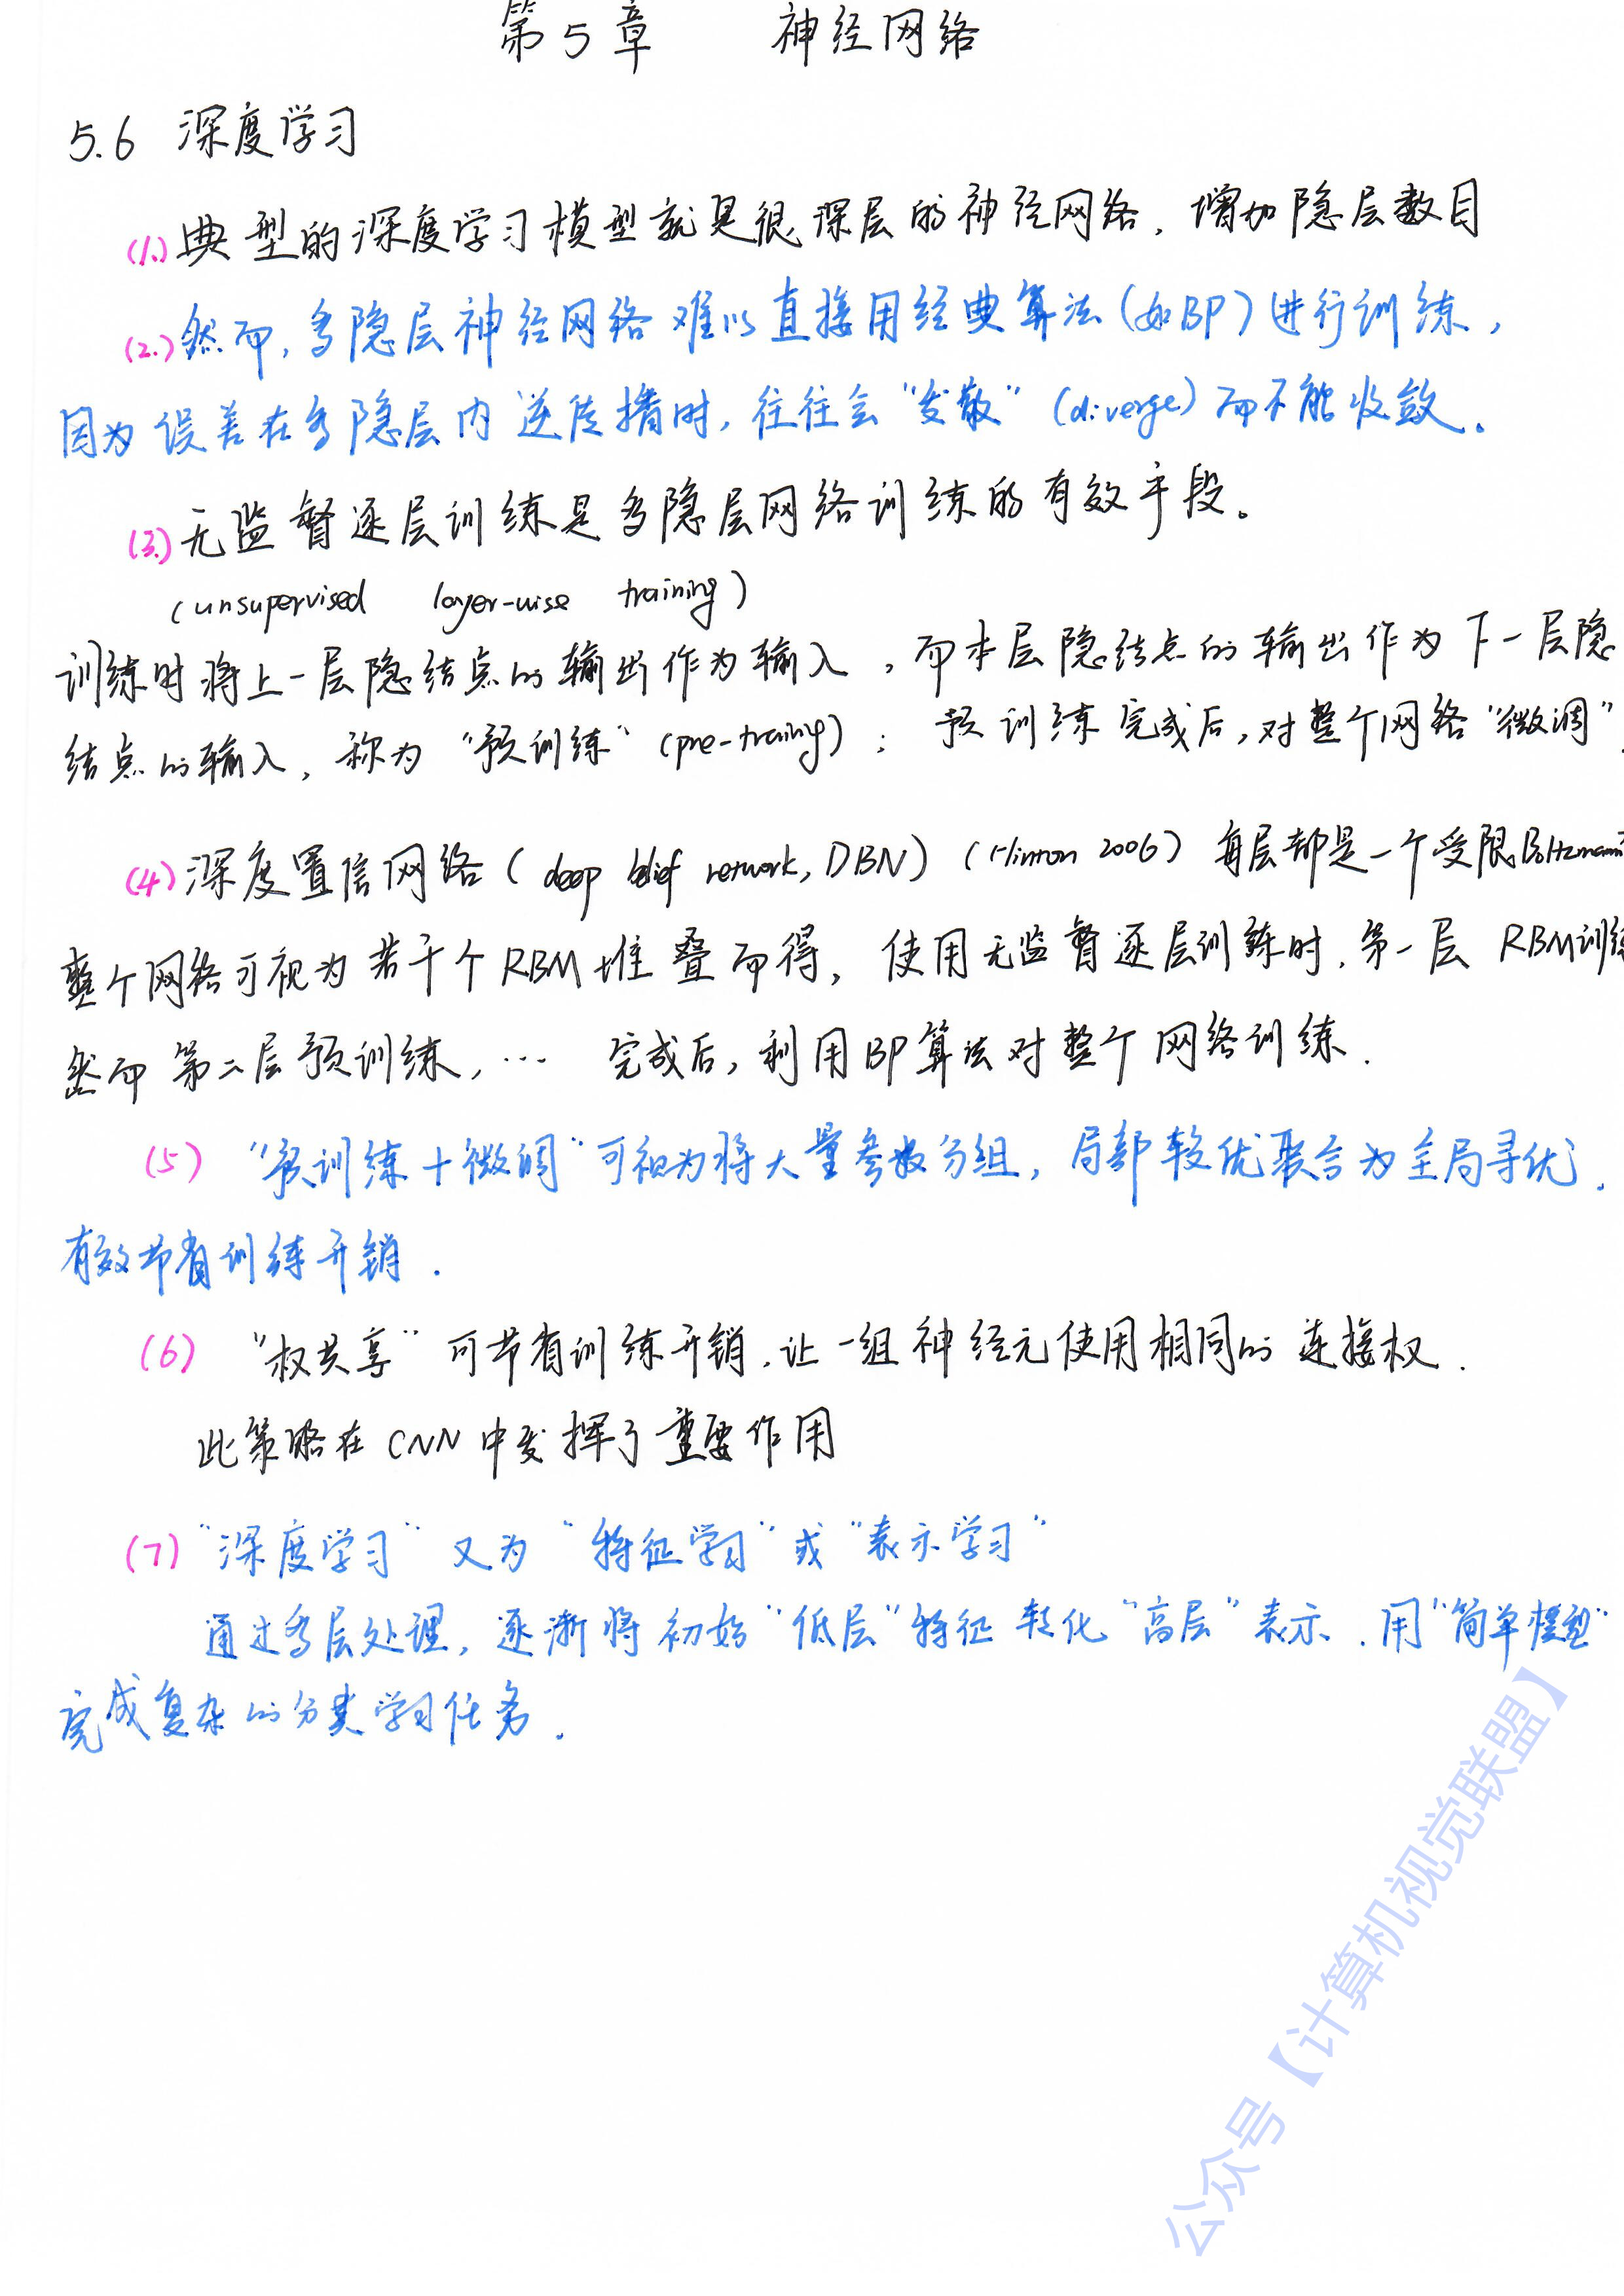 第5章 神经网络
5.6 深度学习
(1.) 典型的深度学习模型就是很深层的神经网络. 增加隐层数目
(2.) 然而, 多隐层神经网络难以直接用经典算法(如BP)进行训练,
因为误差在多隐层内逆传播时, 往往会“发散”(diverge)而不能收敛。
(3.) 无监督逐层训练是多隐层网络训练的有效手段。
(unsupervised layer-wise training)
训练时将上一层隐结点的输出作为输入, 而本层隐结点的输出作为下一层隐
结点的输入, 称为“预训练”(pre-training); 预训练完成后, 对整个网络“微调”
(4) 深度置信网络(deep belief network, DBN)(Hinton 2006) 每层都是一个受限Boltzmann
整个网络可视为若干个RBM堆叠而得, 使用无监督逐层训练时. 第一层RBM训练
然而第二层预训练, … 完成后, 利用BP算法对整个网络训练.
(5) “预训练+微调”可视为将大量参数分组, 局部较优联合为全局寻优.
有效节省训练开销.
(6) “权共享”可节省训练开销. 让一组神经元使用相同的连接权.
此策略在CNN中发挥了重要作用
(7) “深度学习”又为“特征学习”或“表示学习”
通过多层处理, 逐渐将初始“低层”特征转化“高层”表示. 用“简单模型”
完成复杂的分类学习任务.
公众号【计算机视觉联盟】